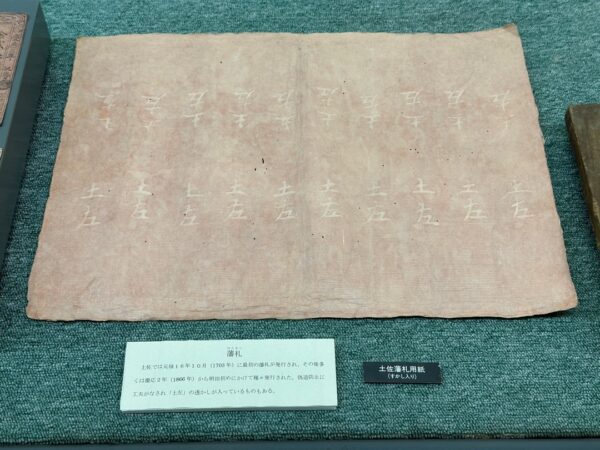 土左 土左 土左 土左 土左 土左 土左 土左 土左 土左
土左 土左 土左 土左 土左 土左 土左 土左 土左 土左
藩札
土佐では元禄16年10月(1703年)に最初の藩札が発行され、その後多
くは慶応2年(1866年)から明治初めにかけて種々発行された。偽造防止に
工夫がなされ「土左」の透かしが入っているものもある。
土佐藩札用紙
(すかし入り)